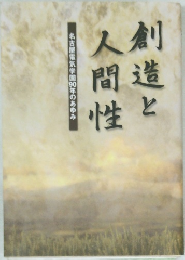 創造と
人間性
名古屋電気学園90年のあゆみ